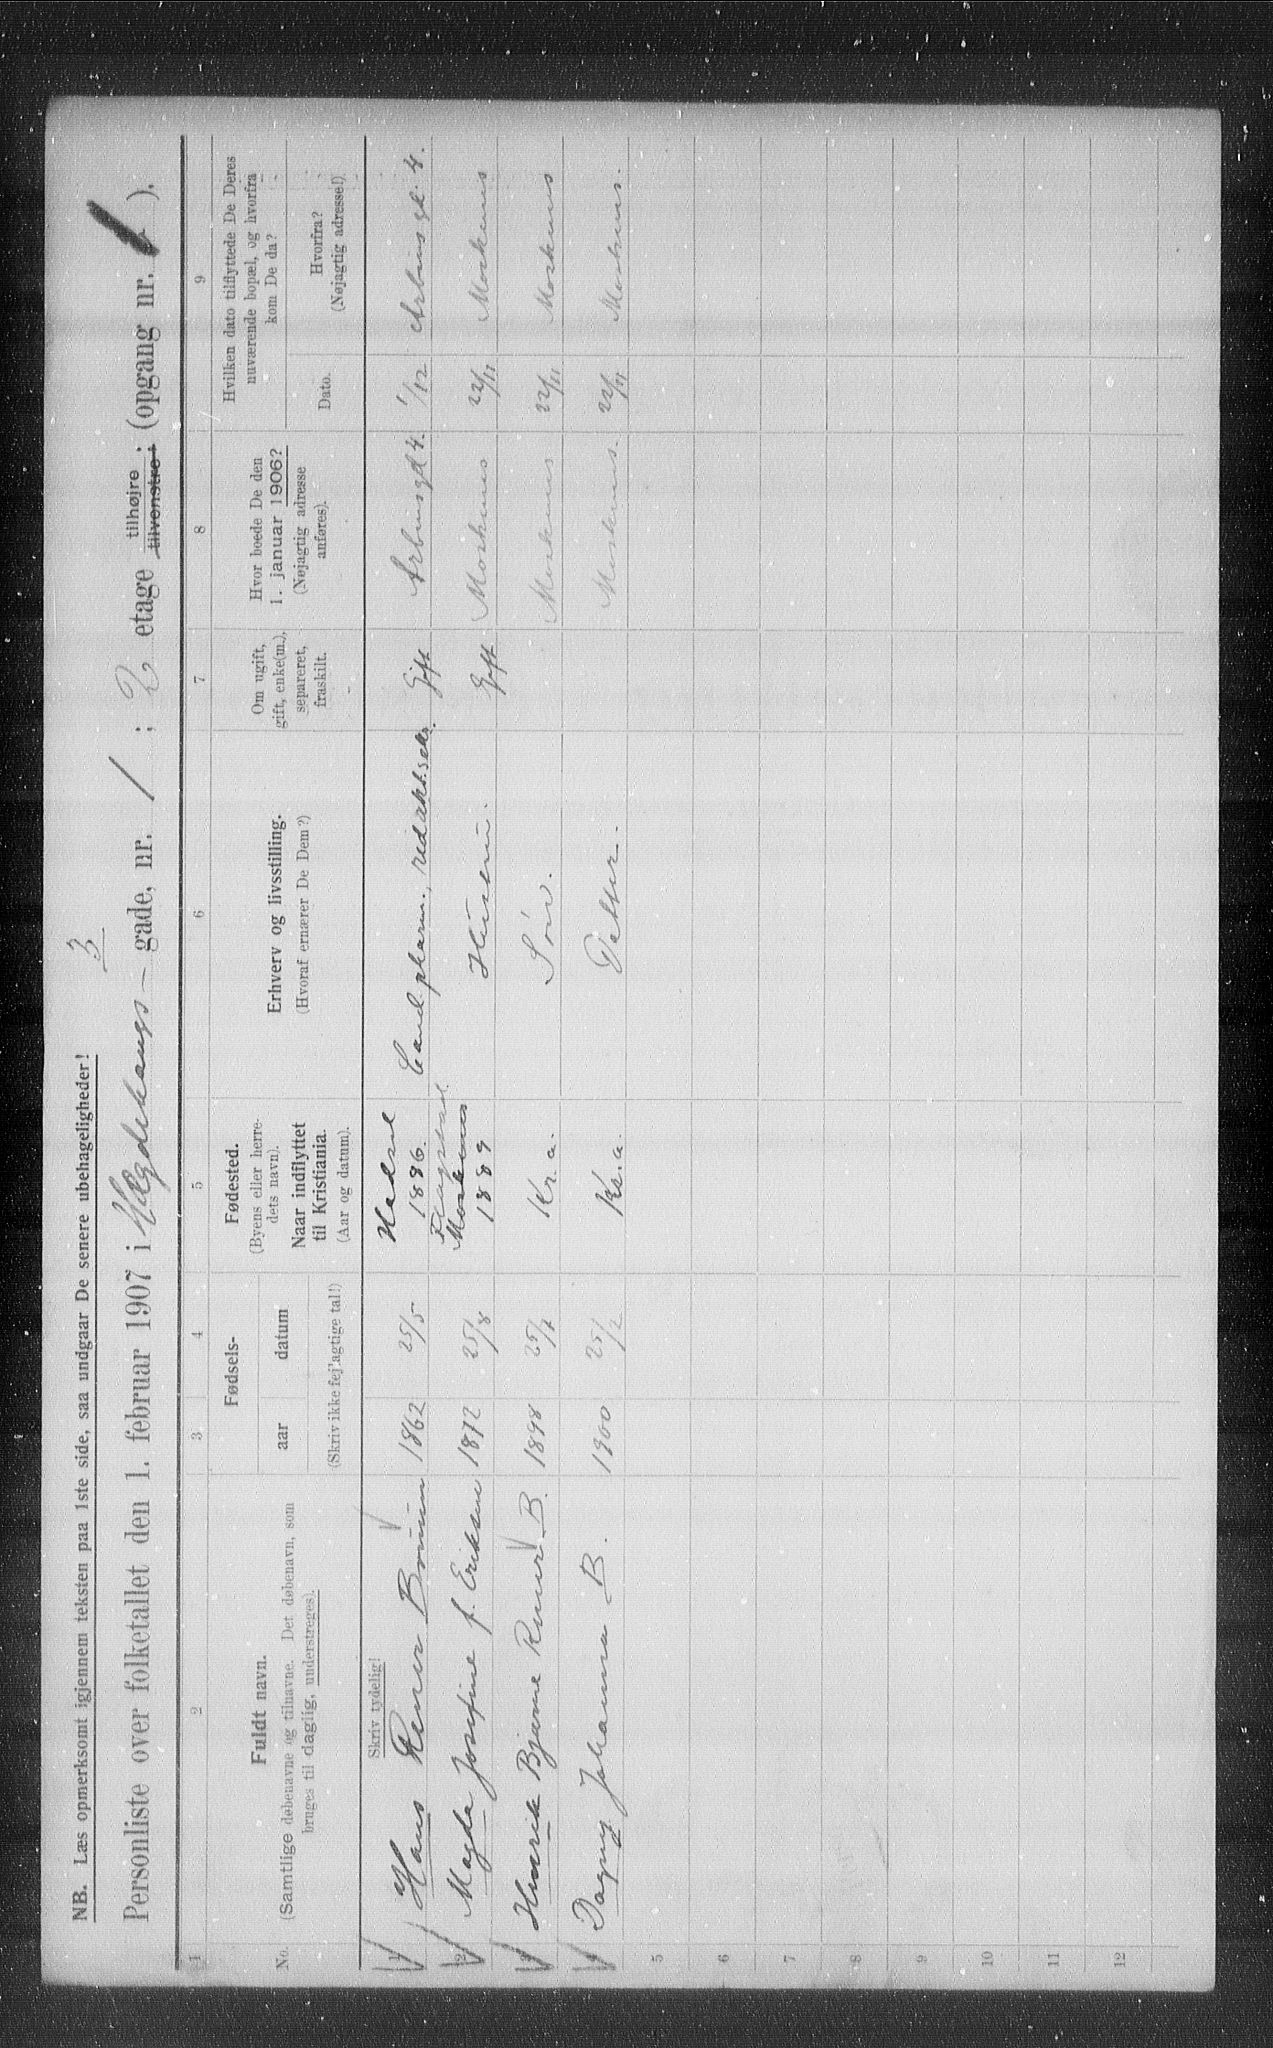 3
NB. Læs opmerksomt igjennem teksten paa 1ste side, saa undgaar De senere ubehageligheder!
Personliste over folketallet den 1. februar 1907 i Hægdehaugs – gade, nr. 1 ; 2 etage tilhøjre ; tilvenstre ; (opgang nr. ).
1 2 3 4 5 6 7 8 9
No.
Fuldt navn.
(Samtlige døbenavne og tilnavne. Det døbenavn, som
bruges til daglig, understreges).
Fødsels-
aar datum
(Skriv ikke fejlagtige tal!)
Fødested.
(Byens eller herre-
dets navn).
Naar indflyttet
til Kristiania.
(Aar og datum).
Erhverv og livsstilling.
(Hvoraf ernærer De Dem?)
Om ugift,
gift, enke(m.),
separeret,
fraskilt.
Hvor boede De den
1. januar 1906?
(Nøjagtig adresse
anføres).
Hvilken dato tilflyttede De Deres
nuværende bopæl, og hvorfra
kom De da?
Dato.
Hvorfra?
(Nøjagtig adresse!)
Skriv tydelig!
1 Hans Reiner Bruun 1862 25/5 Hadsel 1886. Cand. pharm., redakt.sekr. Gift Arbinsgd 4. 1/12 Arbinsgd. 4.
2 Magda Josefine f. Eriksen 1872 25/8 Flagstad Moskenes 1889 Hustru. Gift Moskenes 22/11 Moskenes
3 Henrik Bjarne Reiner B. 1898 25/7 Kr.a. Søn. Moskenes 22/11 Moskenes
4 Dagny Johanna B. 1900 25/2 Kr.a. Datter. Moskenes. 22/11 Moskenes.
5
6
7
8
9
10
11
12